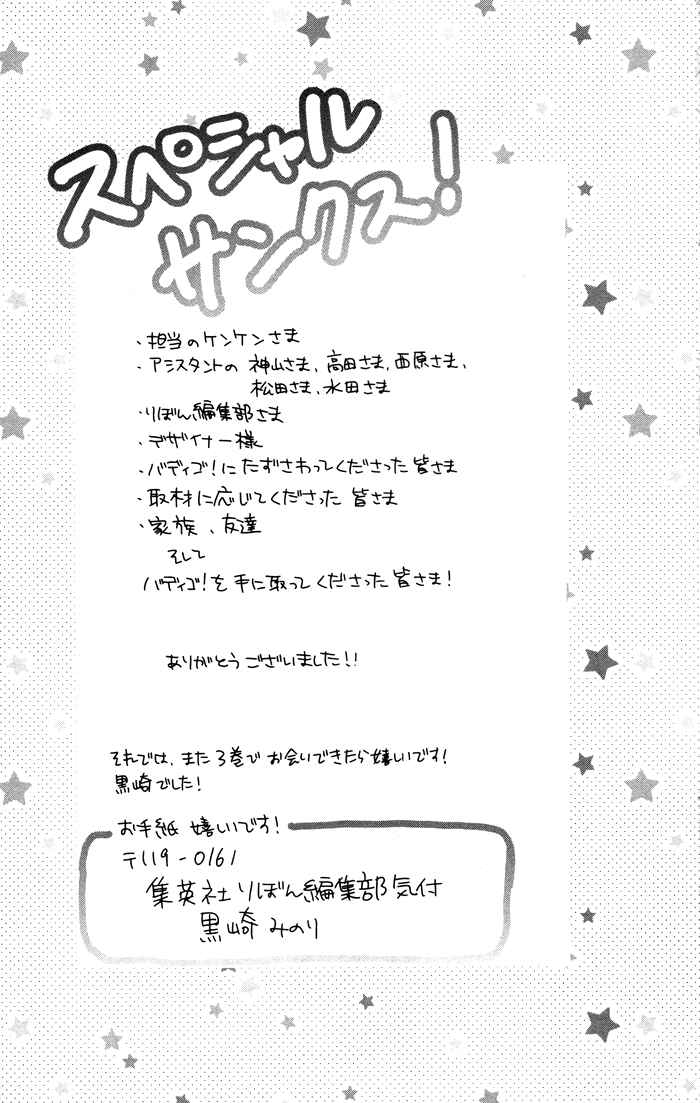 スペシャル
サンクス!
・担当のケンケンさま
・アシスタントの 神山さま、高田さま、西原さま、
松田さま、水田さま
・りぼん編集部さま
・デザイナー様
・バディゴ!にたずさわってくださった 皆さま
・取材に応じてくださった 皆さま
・家族、友達
そして
バディゴ!を手に取ってくださった皆さま!
ありがとうございました!!
それでは、また3巻でお会いできたら嬉しいです!
黒崎でした!
お手紙 嬉しいです!
〒119-0161
集英社りぼん編集部気付
黒崎みのり